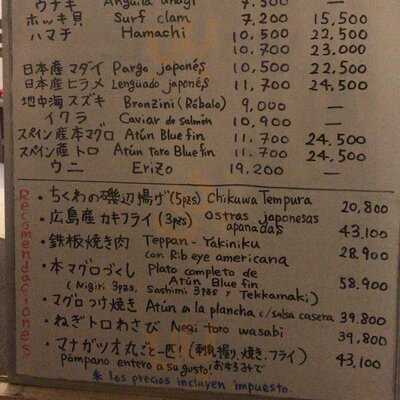 ウナギ Anguila unagi 7,500 —
ホッキ貝 Surf clam 7,200 15,500
ハマチ Hamachi 10,500 22,500
10,700 23,000
日本産マダイ Pargo japonés 10,500 22,500
日本産ヒラメ Lenguado japonés 11,700 24,500
地中海スズキ Bronzini (Róbalo) 9,000 —
イクラ Caviar de salmón 10,900 —
スペイン産本マグロ Atún Bluefin 11,700 24,500
スペイン産トロ Atún toro Bluefin 11,700 24,500
ウニ Erizo 19,200 —
Recomendaciones
・ちくわの磯辺揚げ (5pzs) Chikuwa Tempura 20,800
・広島産カキフライ (3pzs) Ostras japonesas apanadas 43,100
・鉄板焼き肉 Teppan-Yakiniku con Rib eye americana 28,900
・本マグロづくし Plato completo de Atún Bluefin 58,900
(Nigiri 3pzs, Sashimi 3pzs y Tekkamaki)
・マグロつけ焼き Atún en la plancha c/salsa casera 39,800
・ねぎトロわさび Negi toro wasabi 39,800
・マナガツオ丸ごと一匹! (刺身,握り,焼き,フライ) 43,100
pámpano entero a su gusto! お好みで
※ los precios incluyen impuesto.